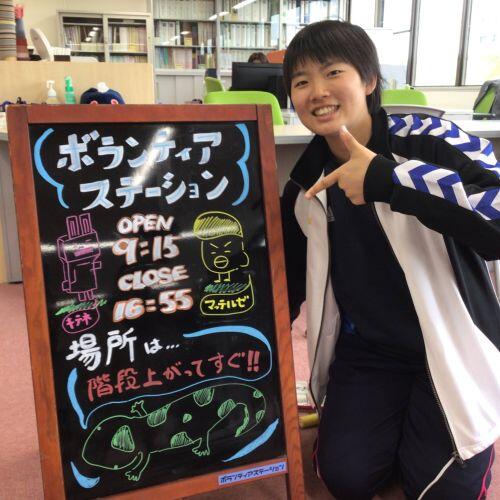 ボランティア
ステーション
OPEN
9:15
CLOSE
16:55
キテネ
マッテルゼ
場所は…
階段上がってすぐ!!
ボランティアステーション